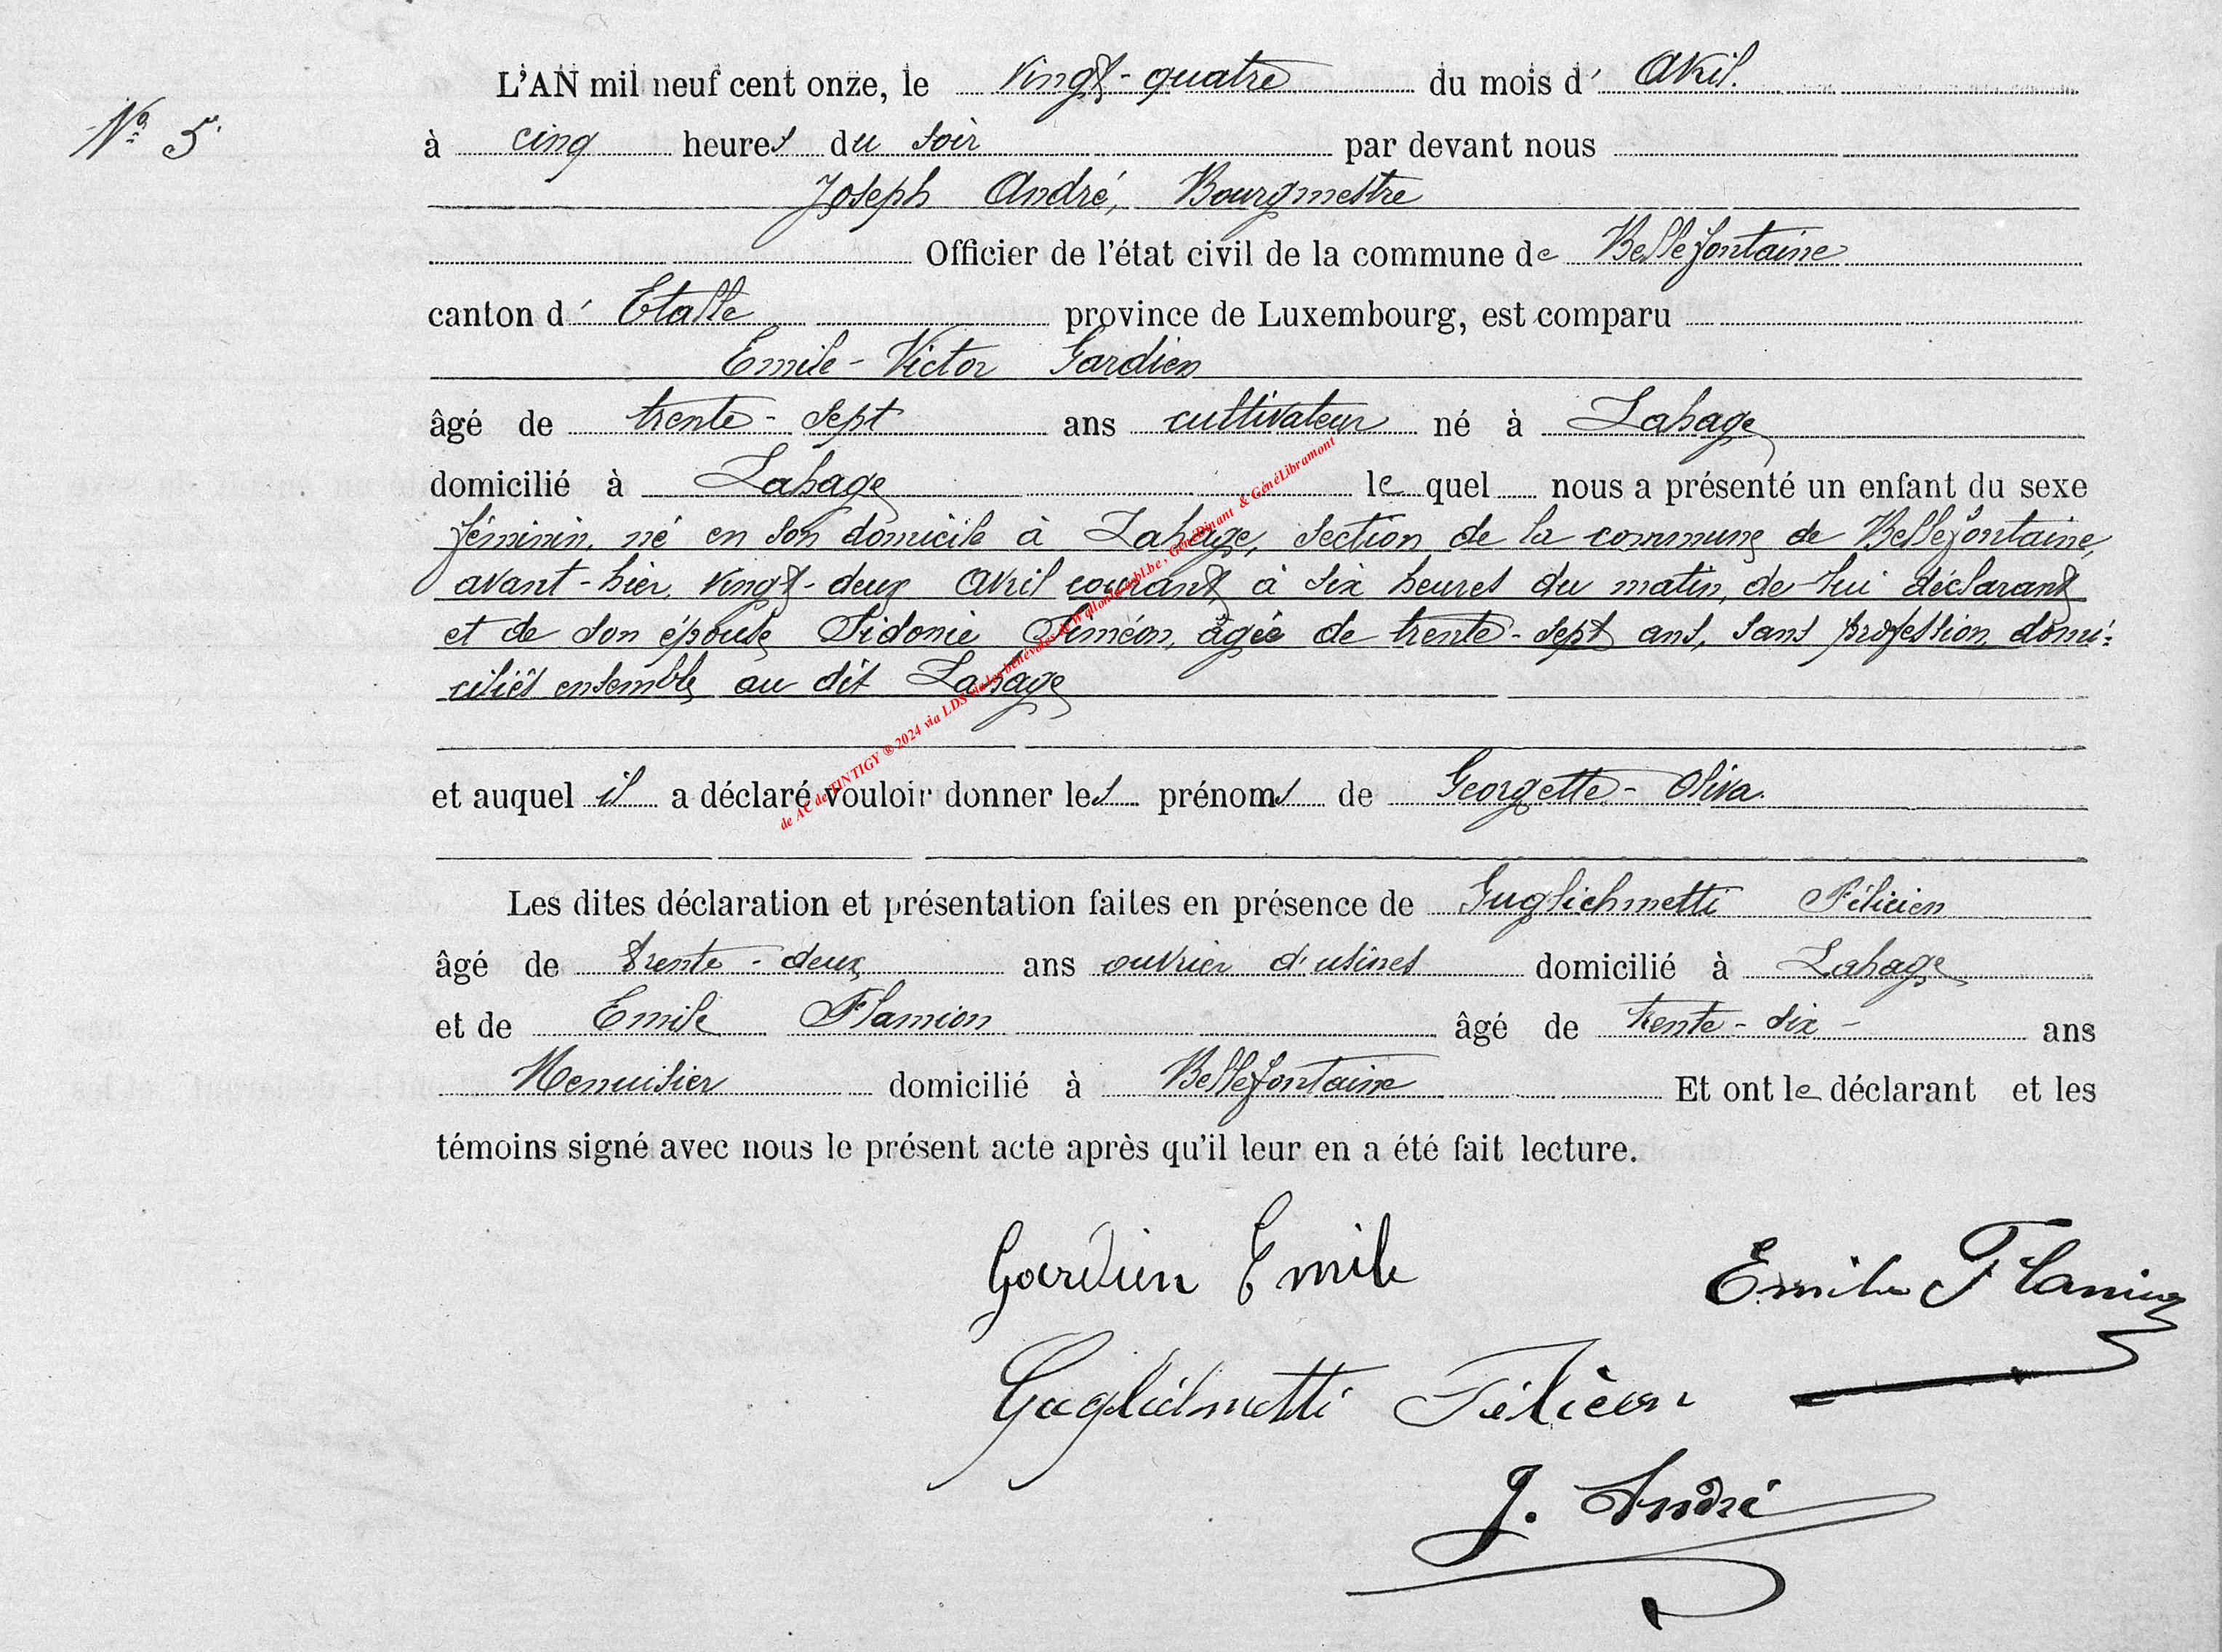 L'AN mil neuf cent onze, le vingt-quatre du mois d' Avril.
N° 5
à cinq heures du soir par devant nous
Joseph André, Bourgmestre
Officier de l'état civil de la commune de Bellefontaine
canton d' Etalle province de Luxembourg, est comparu
Emile-Victor Gardien
âgé de trente-sept ans cultivateur né à Lahage
domicilié à Lahage lequel nous a présenté un enfant du sexe
féminin, né en son domicile à Lahage, section de la commune de Bellefontaine,
avant-hier, vingt-deux avril courant, à six heures du matin, de lui déclarant
et de son épouse Sidonie Siméon, âgée de trente-sept ans, sans profession, domi-
ciliés ensemble au dit Lahage
et auquel il a déclaré vouloir donner les prénoms de Georgette-Oliva.
Les dites déclaration et présentation faites en présence de Guglielmetti Félicien
âgé de trente-deux ans ouvrier d'usines domicilié à Lahage
et de Emile Flamion âgé de trente-six - ans
Menuisier domicilié à Bellefontaine Et ont le déclarant et les
témoins signé avec nous le présent acte après qu'il leur en a été fait lecture.
Gardien Emile
Emile Flamion
Guglielmetti Félicien
J. André
de AC de TINTIGY ® 2024 via LDS via les bénévoles de GénéDinant & GénéLibramont